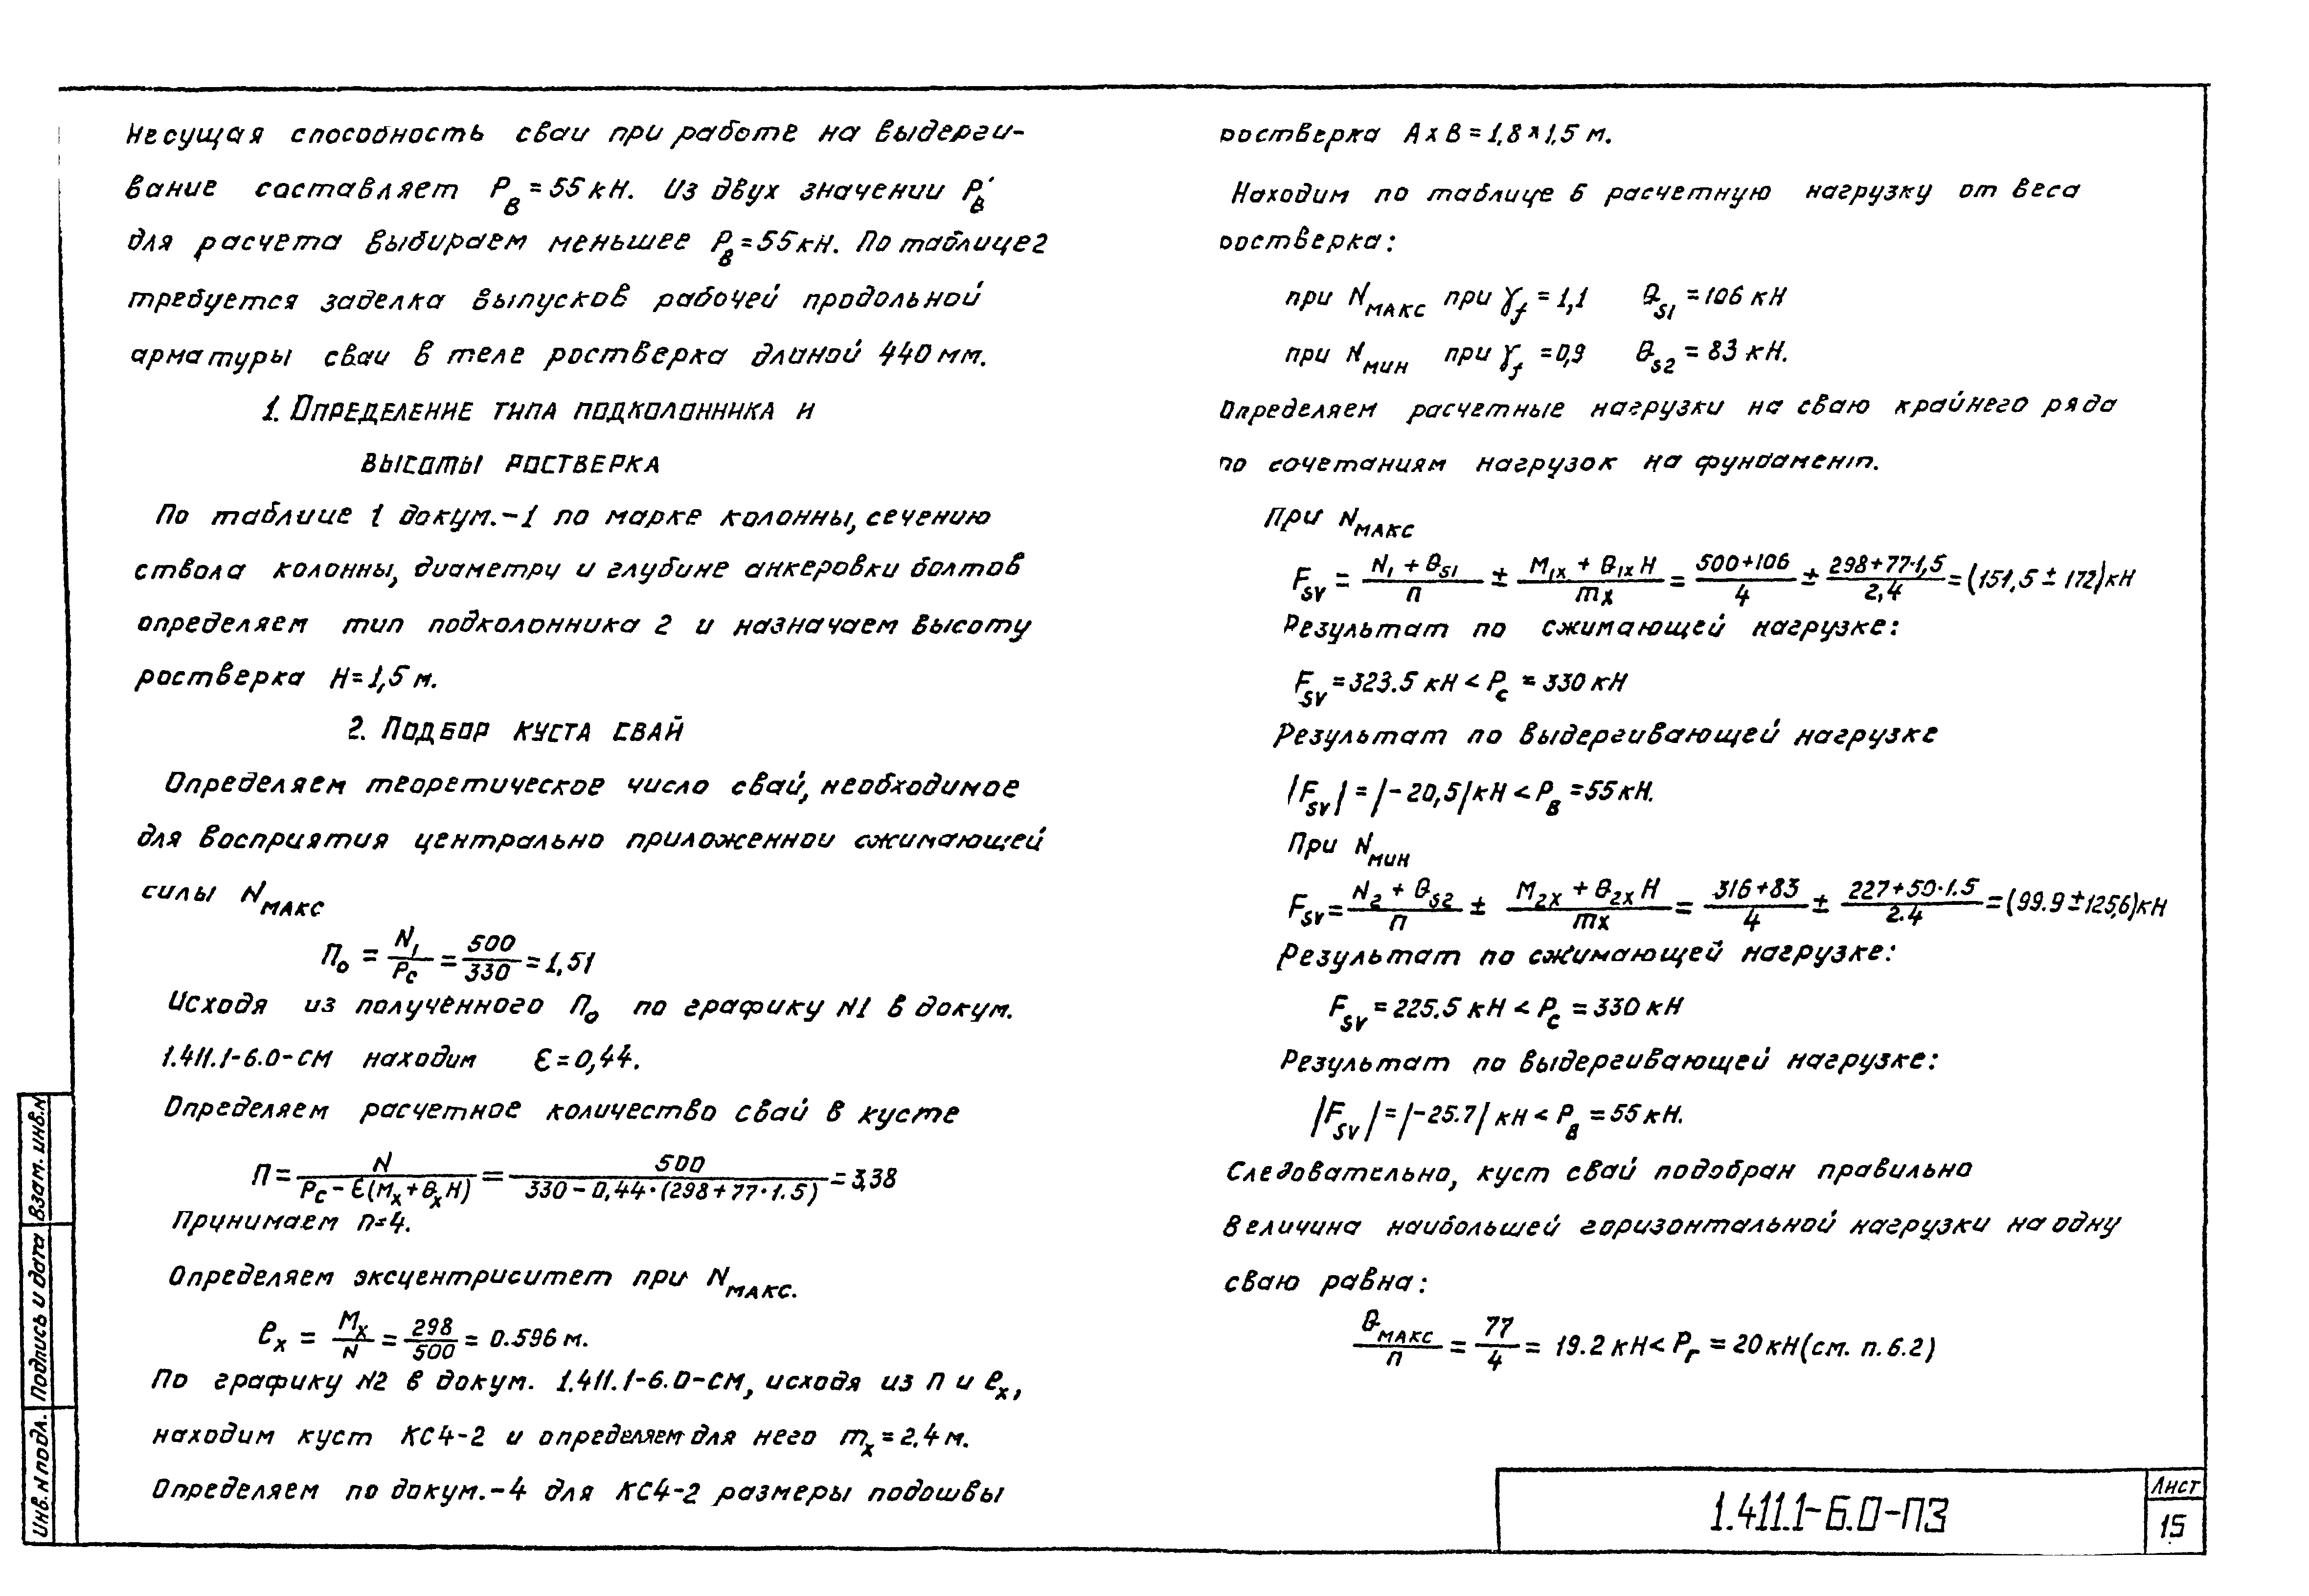 Несущая способность сваи при работе на выдерги-
вание составляет Pв = 55 кН. Из двух значений Pв'
для расчета выбираем меньшее Pв = 55 кН. По таблице 2
требуется заделка выпусков рабочей продольной
арматуры сваи в теле ростверка длиной 440 мм.
1. Определение типа подколонника и
высоты ростверка
По таблице 1 докум.-1 по марке колонны, сечению
ствола колонны, диаметру и глубине анкеровки болтов
определяем тип подколонника 2 и назначаем высоту
ростверка H = 1,5 м.
2. Подбор куста свай
Определяем теоретическое число свай, необходимое
для восприятия центрально приложенной сжимающей
силы Nмакс
n₀ = N₁/Pс = 500/330 = 1,51
Исходя из полученного n₀ по графику N1 в докум.
1.411.1-6.0-СМ находим Ɛ = 0,44.
Определяем расчетное количество свай в кусте
n = N/(Pс - Ɛ(Mx + QxH)) = 500/(330 - 0,44·(298 + 77·1.5)) = 3,38
Принимаем n=4.
Определяем эксцентриситет при Nмакс.
ex = Mx/N = 298/500 = 0.596 м.
По графику N2 в докум. 1.411.1-6.0-СМ, исходя из n и ex,
находим куст КС4-2 и определяем для него mx = 2,4 м.
Определяем по докум.-4 для КС4-2 размеры подошвы
ростверка А х В = 1,8 х 1,5 м.
Находим по таблице 6 расчетную нагрузку от веса
ростверка:
при Nмакс при γf = 1,1 Qs1 = 106 кН
при Nмин при γf = 0,9 Qs2 = 83 кН.
Определяем расчетные нагрузки на сваю крайнего ряда
по сочетаниям нагрузок на фундамент.
При Nмакс
Fsv = (N₁ + Qs1)/n ± (M1x + Q1x H)/mx = (500+106)/4 ± (298+77·1,5)/2,4 = (151,5 ± 172) кН
Результат по сжимающей нагрузке:
Fsv = 323.5 кН < Pс = 330 кН
Результат по выдергивающей нагрузке
|Fsv| = |-20,5| кН < Pв = 55 кН.
При Nмин
Fsv = (N₂ + Qs2)/n ± (M2x + Q2x H)/mx = (316+83)/4 ± (227+50·1.5)/2.4 = (99.9 ± 125,6) кН
Результат по сжимающей нагрузке:
Fsv = 225.5 кН < Pс = 330 кН
Результат по выдергивающей нагрузке:
|Fsv| = |-25.7| кН < Pв = 55 кН.
Следовательно, куст свай подобран правильно
Величина наибольшей горизонтальной нагрузки на одну
сваю равна:
Qмакс/n = 77/4 = 19.2 кН < Pг = 20 кН (см. п. 6.2)
Инв. N подл.
Подпись и дата
Взам. инв. N
1.411.1-6.0-ПЗ
Лист
15